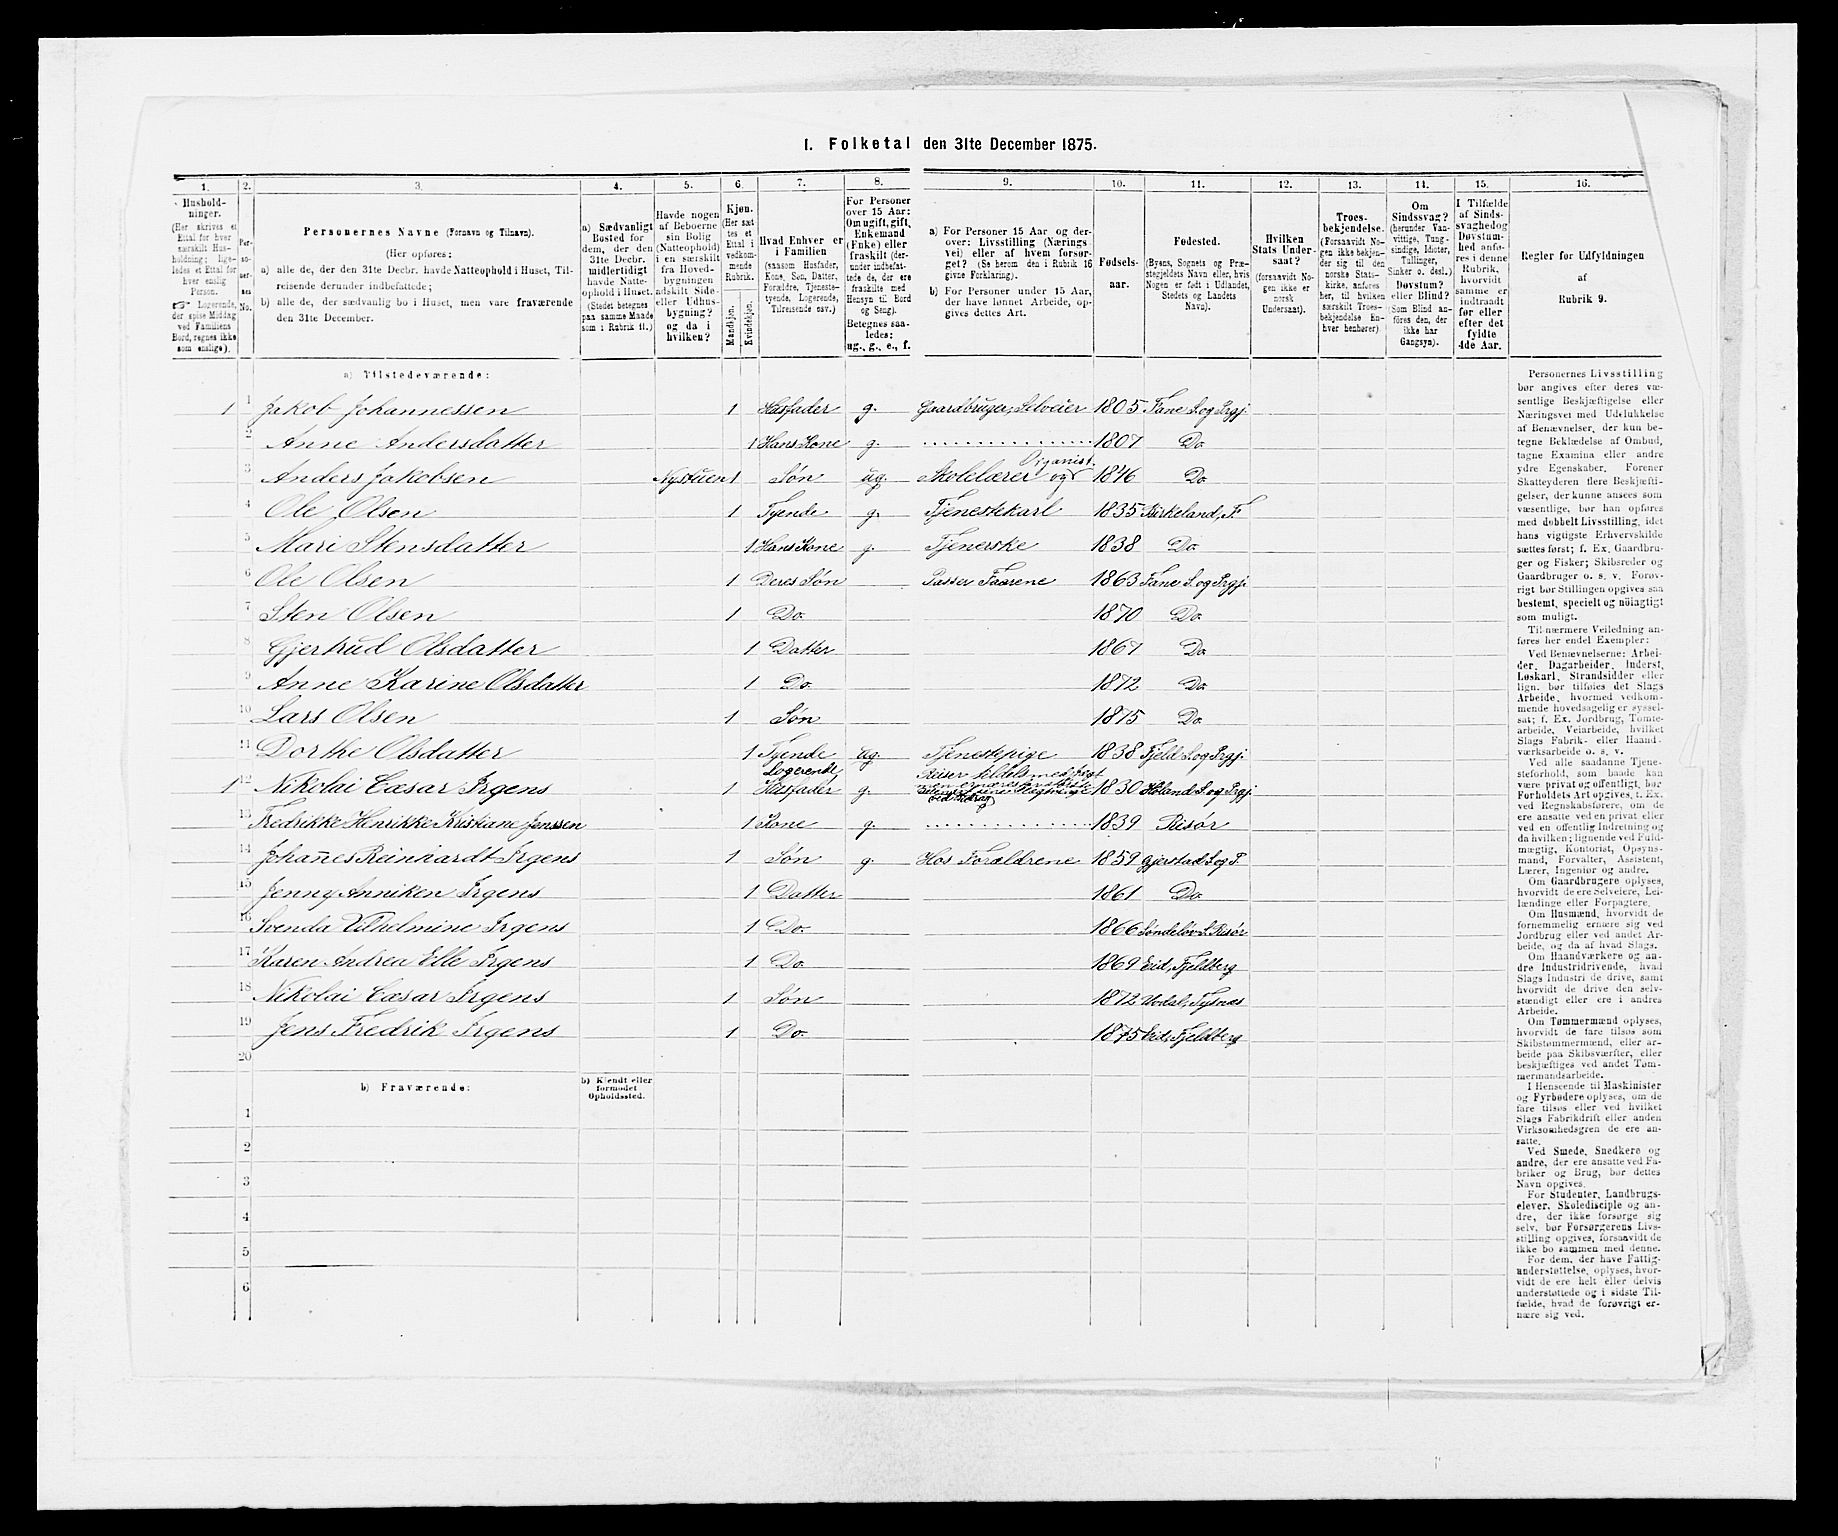 I. Folketal den 31te December 1875.
1. 2. 3. 4. 5. 6. 7. 8. 9. 10. 11. 12. 13. 14. 15. 16.
Husholdninger. (Her skrives et Ettal for hver særskilt Husholdning; ligeledes et Ettal for hver enslig Person. ☞ Logerende, der spise Middag ved Familiens Bord, regnes ikke som enslige).
Personernes No.
Personernes Navne (Fornavn og Tilnavn).
(Her opføres:
a) alle de, der den 31te Decbr. havde Natteophold i Huset, Tilreisende derunder indbefattede;
b) alle de, der sædvanlig bo i Huset, men vare fraværende den 31te December.
a) Sædvanligt Bosted for dem, der den 31te Decbr. midlertidigt havde Natteophold i Huset. (Stedet betegnes paa samme Maade som i Rubrik 11.)
Havde nogen af Beboerne sin Bolig (Natteophold) i en særskilt fra Hovedbygningen adskilt Side- eller Udhusbygning? og da i hvilken?
Kjøn. (Her sættes et Ettal i vedkommende Rubrik.
Mandkjøn. Kvindekjøn.
Hvad Enhver er i Familien (saasom Husfader, Kone, Søn, Datter, Forældre, Tjenestetyende, Logerende, Tilreisende osv.)
For Personer over 15 Aar: Om ugift, gift, Enkemand (Enke) eller fraskilt (derunder indbefattede de, der ere fraskilte med Hensyn til Bord og Seng). Betegnes saaledes: ug., g., e., f.
a) For Personer 15 Aar og derover: Livsstilling (Næringsvei) eller af hvem forsørget? (Se herom den i Rubrik 16 givne Forklaring).
b) For Personer under 15 Aar, der have lønnet Arbeide, opgives dettes Art.
Fødselsaar.
Fødested. (Byens, Sognets og Præstegjeldets Navn eller, hvis Nogen er født i Udlandet, Stedets og Landets Navn).
Hvilken Stats Undersaat? (forsaavidt Nogen ikke er norsk Undersaat).
Troesbekjendelse. (Forsaavidt Nogen ikke bekjender sig til den norske Statskirke, anføres her, til hvilken særskilt Troesbekjendelse Enhver henhører)
Om Sindssvag? (herunder Vanvittige, Tungsindige, Idioter, Tullinger, Sinker o. desl.) Døvstum? eller Blind? (Som Blind anføres den, der ikke har Gangsyn).
I Tilfælde af Sindssvaghed og Døvstumhed anføres i denne Rubrik, hvorvidt samme er indtraadt før eller efter det fyldte 4de Aar.
Regler for Udfyldningen af Rubrik 9.
a) Tilstedeværende:
1 1 Jakob Johannessen 1 Husfader g. Gaardbruger, Selveier 1805 Fane S. og Prgj.
2 Anne Andersdatter 1 Hans Kone g. 1807 Do
3 Anders Jakobsen Nystuen 1 Søn ug. Skolelærer og Organist. 1846 Do
4 Ole Olsen 1 Tyende g. Tjenestekarl 1835 Birkeland, F.
5 Mari Stensdatter 1 Hans Kone g. Tjenerske 1838 Do.
6 Ole Olsen 1 Deres Søn Passer Faarene 1863 Fane S. og Prgj.
7 Sten Olsen 1 Do. 1870 Do
8 Gjertrud Olsdatter 1 Datter 1867 Do
9 Anne Karine Olsdatter 1 Do. 1872 Do.
10 Lars Olsen 1 Søn 1875 Do
11 Dorthe Olsdatter 1 Tyende ug. Tjenestepige 1838 Fjeld S. og Prgj.
1 12 Nikolai Cæsar Irgens 1 Logerende, Husfader g. 1830 Høland S. og Prgj.
13 Fredrikke Henrikke Kristiane Jenssen 1 Kone g. 1839 Risør
14 Johañes Reinhardt Irgens 1 Søn g. Hos Forældrene 1859 Gjerstad S. og P.
15 Jenny Anniken Irgens 1 Datter 1861 Do
16 Svenda Vilhelmine Irgens 1 Do. 1866 Søndeløv S. Risør
17 Karen Andrea Elle Irgens 1 Do 1869 Eid, Fjeldberg
18 Nikolai Cæsar Irgens 1 Søn 1872 Tysnæs
19 Jens Fredrik Irgens 1 Do. 1875 Eid, Fjeldberg
20
b) Fraværende:
b) Kjendt eller formodet Opholdssted.
1
2
3
4
5
6
Personernes Livsstilling
bør angives efter deres væ-
sentlige Beskjæftigelse eller
Næringsvei med Udelukkelse
af Benævnelser, der kun be-
tegne Beklædelse af Ombud,
tagne Examina eller andre
ydre Egenskaber. Forener
Skatteyderen flere Beskjæfti-
gelser, der kunne ansees som
væsentlige, bør han opføres
med dobbelt Livsstilling, idet
hans vigtigste Erhvervskilde
sættes først; f. Ex. Gaardbru-
ger og Fisker; Skibsreder og
Gaardbruger o. s. v. Forøv-
rigt bør Stillingen opgives saa
bestemt, specielt og nöiagtigt
som muligt.
Til nærmere Veiledning an-
føres her endel Exempler:
Ved Benævnelserne: Arbei-
der, Dagarbeider, Inderst,
Løskarl, Strandsidder eller
lign. bør tilføies det Slags
Arbeide, hvormed vedkom-
mende hovedsagelig er syssel-
sat; f. Ex. Jordbrug, Tomte-
arbeide, Veiarbeide, hvilket
Slags Fabrik- eller Haand-
værksarbeide o. s. v.
Ved alle saadanne Tjene-
steforhold, som baade kan
være privat og offentligt, bør
Forholdets Art opgives, f. Ex.
ved Regnskabsførere, om de
ere ansatte ved en privat eller
ved en offentlig Indretning og
da hvilken; lignende ved Fuld-
mægtig, Kontorist, Opsyns-
mand, Forvalter, Assistent,
Lærer, Ingeniør og andre.
Om Gaardbrugere oplyses,
hvorvidt de ere Selveiere, Lei-
lændinge eller Forpagtere.
Om Husmænd, hvorvidt de
fornemmelig ernære sig ved
Jordbrug eller ved andet Ar-
beide, og da af hvad Slags.
Om Haandværkere og an-
dre Industridrivende, hvad
Slags Industri de drive, samt
hvorvidt de drive den selv-
stændigt eller ere i andres
Arbeide.
Om Tømmermænd oplyses,
hvorvidt de fare tilsøs som
Skibstømmermænd, eller ar-
beide paa Skibsværfter, eller
beskjæftiges ved andet Tøm-
mermandsarbeide.
I Henseende til Maskinister
og Fyrbødere oplyses, om de
fare tilsøs eller ved hvilket
Slags Fabrikdrift eller anden
Virksomhedsgren de ere an-
satte.
Ved Smede, Snedkere og
andre, der ere ansatte ved Fa-
briker og Brug, bør dettes
Navn opgives.
For Studenter, Landbrugs-
elever, Skoledisciple og an-
dre, der ikke forsørge sig
selv, bør Forsørgerens Livs-
stilling opgives, forsaavidt de
ikke bo sammen med denne.
For dem, der have Fattig-
understøttelse, oplyses, hvor-
vidt de ere helt eller delvis
understøttede og i sidste Til-
fælde, hvad de forøvrigt er-
nære sig ved.